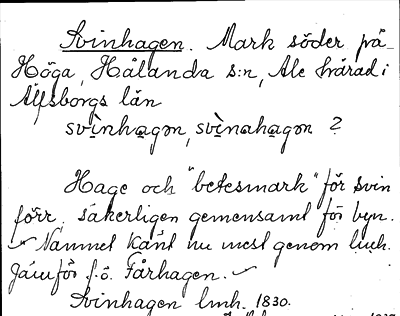 Svinhagen. Mark söder på
Höga, Hålanda s:n, Ale härad i
Älfsborgs län
svìnhagən, svìnahagən ?
Hage och "betesmark" för svin
förr. säkerligen gemensamt för byn.
Namnet känt nu mest genom lmh.
Jämför f.ö. Fårhagen.
Svinhagen lmh. 1830.